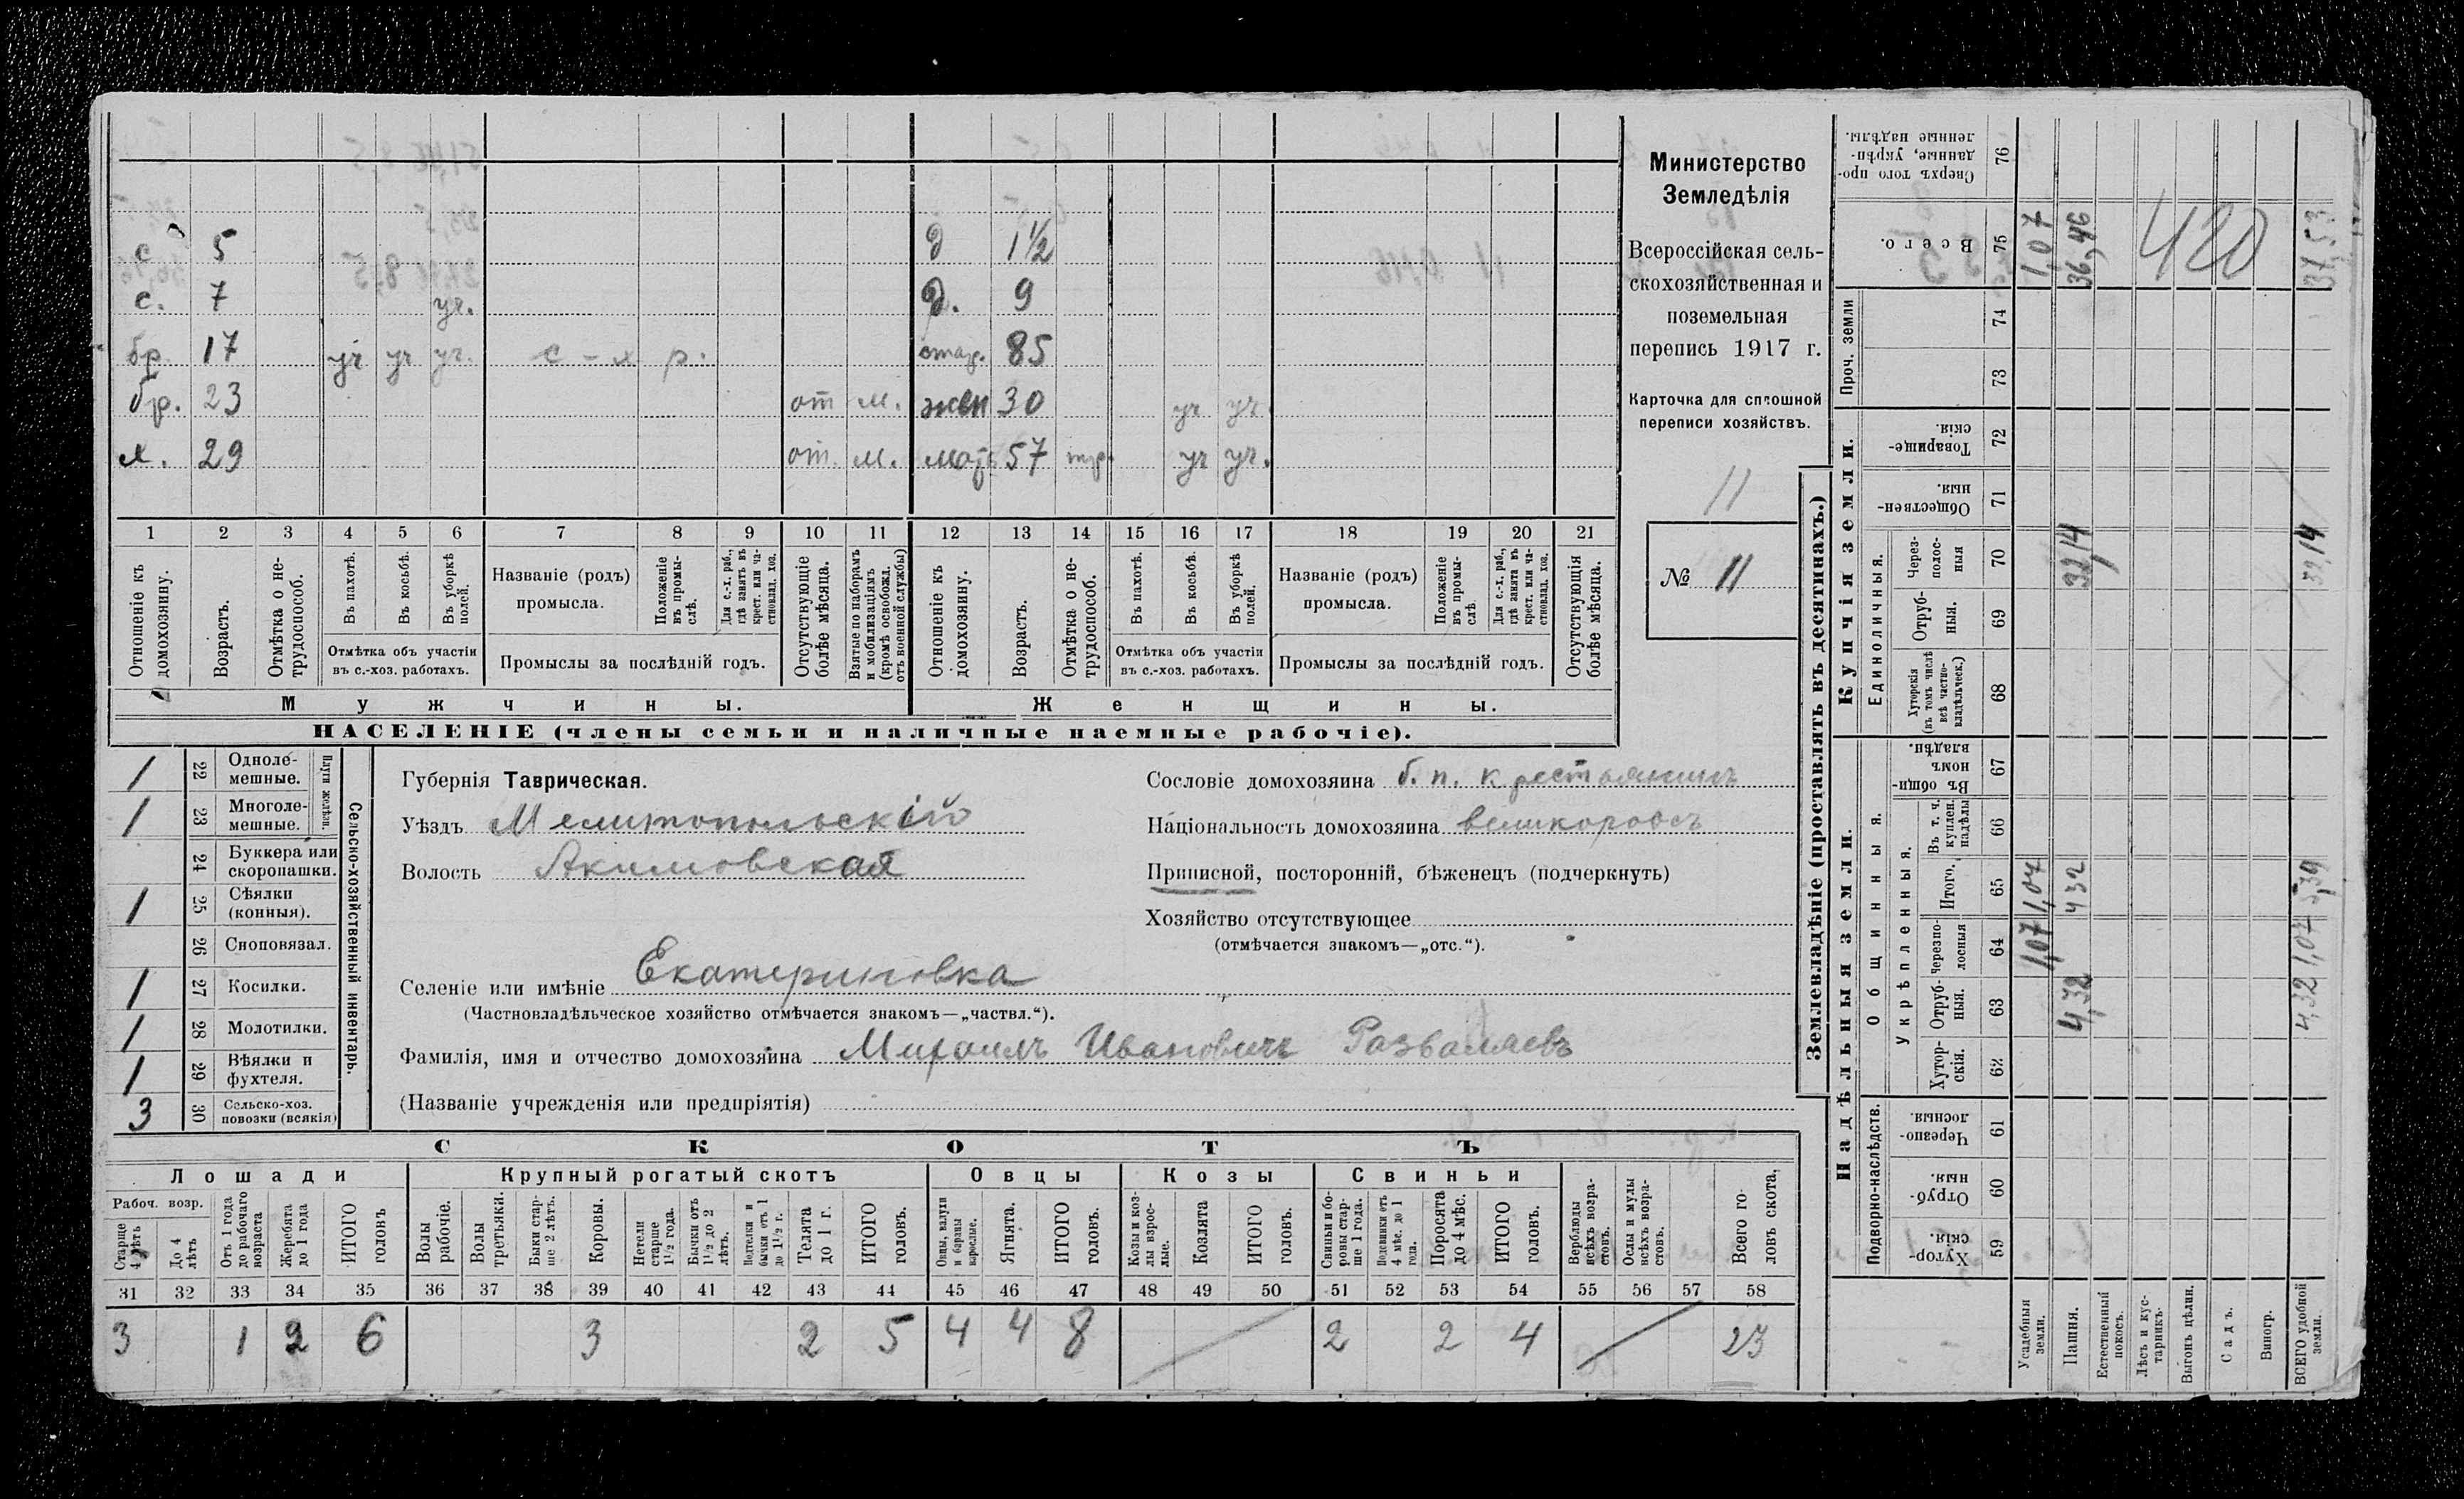 с 5 д 1½
с. 7 уч. д. 9
бр. 17 уч уч уч. с-х р. стар. 85
бр. 23 от м. жен 30 уч уч.
х. 29 от. м. мать 57 тр. уч уч.
1 2 3 4 5 6 7 8 9 10 11 12 13 14 15 16 17 18 19 20 21
Отношеніе къ домохозяину.
Возрастъ.
Отмѣтка о не-
трудоспособ.
Въ пахотѣ.
Въ косьбѣ.
Въ уборкѣ
полей.
Отмѣтка объ участіи
въ с.-хоз. работахъ.
Названіе (родъ)
промысла.
Положеніе
въ промы-
слѣ.
Для с.-х. раб.,
гдѣ занятъ въ
крест. или ча-
стновлад. хоз.
Промыслы за послѣдній годъ.
Отсутствующіе
болѣе мѣсяца.
Взятые по наборамъ
и мобилизаціямъ
(кромѣ освобожд.
отъ военной службы)
Отношеніе къ
домохозяину.
Возрастъ.
Отмѣтка о не-
трудоспособ.
Въ пахотѣ.
Въ косьбѣ.
Въ уборкѣ
полей.
Отмѣтка объ участіи
въ с.-хоз. работахъ.
Названіе (родъ)
промысла.
Положеніе
въ промы-
слѣ.
Для с.-х. раб.,
гдѣ занята въ
крест. или ча-
стновлад. хоз.
Промыслы за послѣдній годъ.
Отсутствующія
болѣе мѣсяца.
Мужчины.
Женщины.
НАСЕЛЕНІЕ (члены семьи и наличные наемные рабочіе).
Министерство
Земледѣлія
Всероссійская сель-
скохозяйственная и
поземельная
перепись 1917 г.
Карточка для сплошной
переписи хозяйствъ.
11
№ 11
Сельско-хозяйственный инвентарь.
Плуги желѣзн.
1 22 Одноле-
мешные.
1 23 Многоле-
мешные.
24 Буккера или
скоропашки.
1 25 Сѣялки
(конныя).
26 Сноповязал.
1 27 Косилки.
1 28 Молотилки.
1 29 Вѣялки и
фухтеля.
3 30 Сельско-хоз.
повозки (всякія)
Губернія Таврическая.
Уѣздъ Мелитопольскій
Волость Акимовская
Сословіе домохозяина б. п. крестьянинъ
Національность домохозяина великороссъ
Приписной, посторонній, бѣженецъ (подчеркнуть)
Хозяйство отсутствующее
(отмѣчается знакомъ—„отс.“).
Селеніе или имѣніе Екатериновка
(Частновладѣльческое хозяйство отмѣчается знакомъ—„частвл.“).
Фамилія, имя и отчество домохозяина Михаилъ Ивановичъ Разваляевъ
(Названіе учрежденія или предпріятія)
СКОТЪ
Лошади
Крупный рогатый скотъ
Овцы
Козы
Свиньи
Рабоч. возр.
Старше
4 лѣтъ
До 4
лѣтъ
Отъ 1 года
до рабочаго
возраста
Жеребята
до 1 года
ИТОГО
головъ
Волы
рабочіе.
Волы
третьяки.
Быки стар-
ше 2 лѣтъ.
Коровы.
Нетели
старше
1½ года.
Бычки отъ
1½ до 2
лѣтъ.
Подтелки и
бычки отъ 1
до 1½ г.
Телята
до 1 г.
ИТОГО
головъ.
Овцы, валухи
и бараны
взрослые.
Ягнята.
ИТОГО
головъ.
Козы и коз-
лы взрос-
лые.
Козлята
ИТОГО
головъ.
Свиньи и бо-
ровы стар-
ше 1 года.
Подсвинки отъ
4 мѣс. до 1
года.
Поросята
до 4 мѣс.
ИТОГО
головъ.
Верблюды
всѣхъ возра-
стовъ.
Ослы и мулы
всѣхъ возра-
стовъ.
Всего го-
ловъ скота.
31 32 33 34 35 36 37 38 39 40 41 42 43 44 45 46 47 48 49 50 51 52 53 54 55 56 57 58
3 1 2 6 3 2 5 4 4 8 2 2 4 23
Землевладѣніе (проставлять въ десятинахъ.)
Надѣльныя земли.
Купчія земли.
Проч. земли
Подворно-наслѣдств.
Общинныя.
Укрѣпленныя.
Единоличныя.
Хутор-
скія.
59
Отруб-
ныя.
60
Черезпо-
лосныя.
61
Хутор-
скія.
62
Отруб-
ныя.
63
Черезпо-
лосныя
64
Итого.
65
Въ т. ч.
куплен.
надѣлы
66
Въ общин-
номъ
владѣн.
67
Хуторскія
(въ томъ числѣ
всѣ частно-
владѣльческ.)
68
Отруб-
ныя.
69
Через-
полос-
ныя
70
Обществен-
ныя.
71
Товарище-
скія.
72
73
74
Всего.
75
Сверхъ того про-
данные, укрѣп-
ленные надѣлы.
76
Усадебныя
земли.
1,07 1,07 1,07
Пашня.
4,32 4 32 32,14 36,46
Естественный
покосъ.
Лѣсъ и кус-
тарникъ.
Выгонъ цѣлин.
Садъ.
Виногр.
ВСЕГО удобной
земли.
4,32 1,07 5,39 32,14 37,53
420